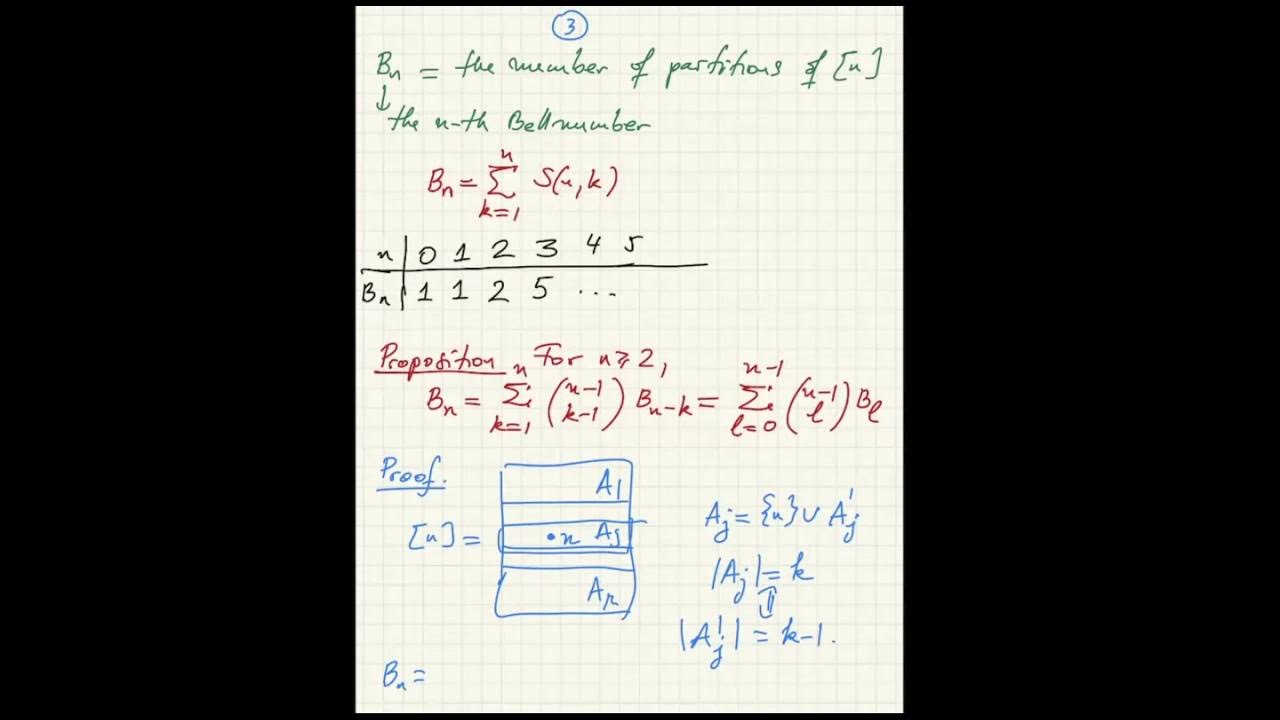 3
Bₙ = the number of partitions of [n]
↓
the n-th Bell number
Bₙ = ∑_{k=1}^{n} S(n, k)
n | 0 1 2 3 4 5
Bₙ | 1 1 2 5 ...
Proposition For n ≥ 2,
Bₙ = ∑_{k=1}^{n} \binom{n-1}{k-1} B_{n-k} = ∑_{l=0}^{n-1} \binom{n-1}{l} B_l
Proof.
A₁
[n] = • n A_j
A_r
A_j = {n} ∪ A'_j
|A_j| = k
⇓
|A'_j| = k-1.
Bₙ =